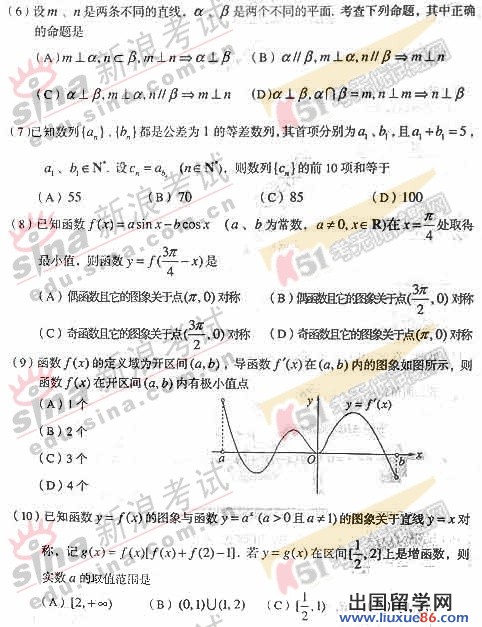 (6)设m、n是两条不同的直线，α、β是两个不同的平面.考查下列命题，其中正确
的命题是
(A)m⊥α,n⊂β,m⊥n⇒α⊥β (B)α∥β,m⊥α,n∥β⇒m⊥n
(C)α⊥β,m⊥α,n∥β⇒m⊥n (D)α⊥β,α⋂β=m,n⊥m⇒n⊥β
(7)已知数列{aₙ}、{bₙ}都是公差为1的等差数列,其首项分别为a₁、b₁,且a₁+b₁=5,
a₁、b₁∈N*.设cₙ=a_{bₙ} (n∈N*)，则数列{cₙ}的前10项和等于
(A) 55 (B) 70 (C) 85 (D) 100
(8)已知函数f(x)=asinx−bcosx (a、b为常数，a≠0,x∈R)在x=π/4处取得
最小值，则函数y=f(3π/4−x)是
(A)偶函数且它的图象关于点(π,0)对称 (B)偶函数且它的图象关于点(3π/2,0)对称
(C)奇函数且它的图象关于点(3π/2,0)对称 (D)奇函数且它的图象关于点(π,0)对称
(9)函数f(x)的定义域为开区间(a,b)，导函数f′(x)在(a,b)内的图象如图所示，则
函数f(x)在开区间(a,b)内有极小值点
(A)1个
(B)2个
(C)3个
(D)4个
y
y=f′(x)
a
O
b
x
(10)已知函数y=f(x)的图象与函数y=aˣ(a>0且a≠1)的图象关于直线y=x对
称，记g(x)=f(x)[f(x)+f(2)−1].若y=g(x)在区间[1/2,2]上是增函数，则
实数a的取值范围是
(A)[2,+∞) (B)(0,1)⋃(1,2) (C)[1/2,1)
新浪考试
sina
edu.sina.com.cn
51考元招网
出国留学网
www.liuxue86.com